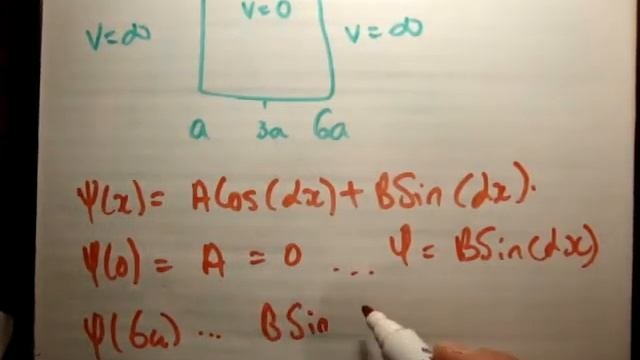 V=0
V=∞ V=∞
a 3a 6a
ψ(x)= A Cos(αx)+ BSin(αx).
ψ(0) = A = 0 ... ψ = BSin(αx)
ψ(6a) ... BSin